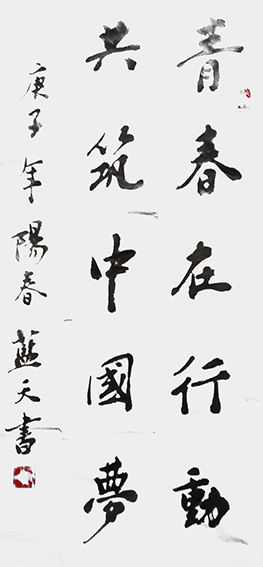 青春在行動
共筑中國夢
庚子年陽春藍天書